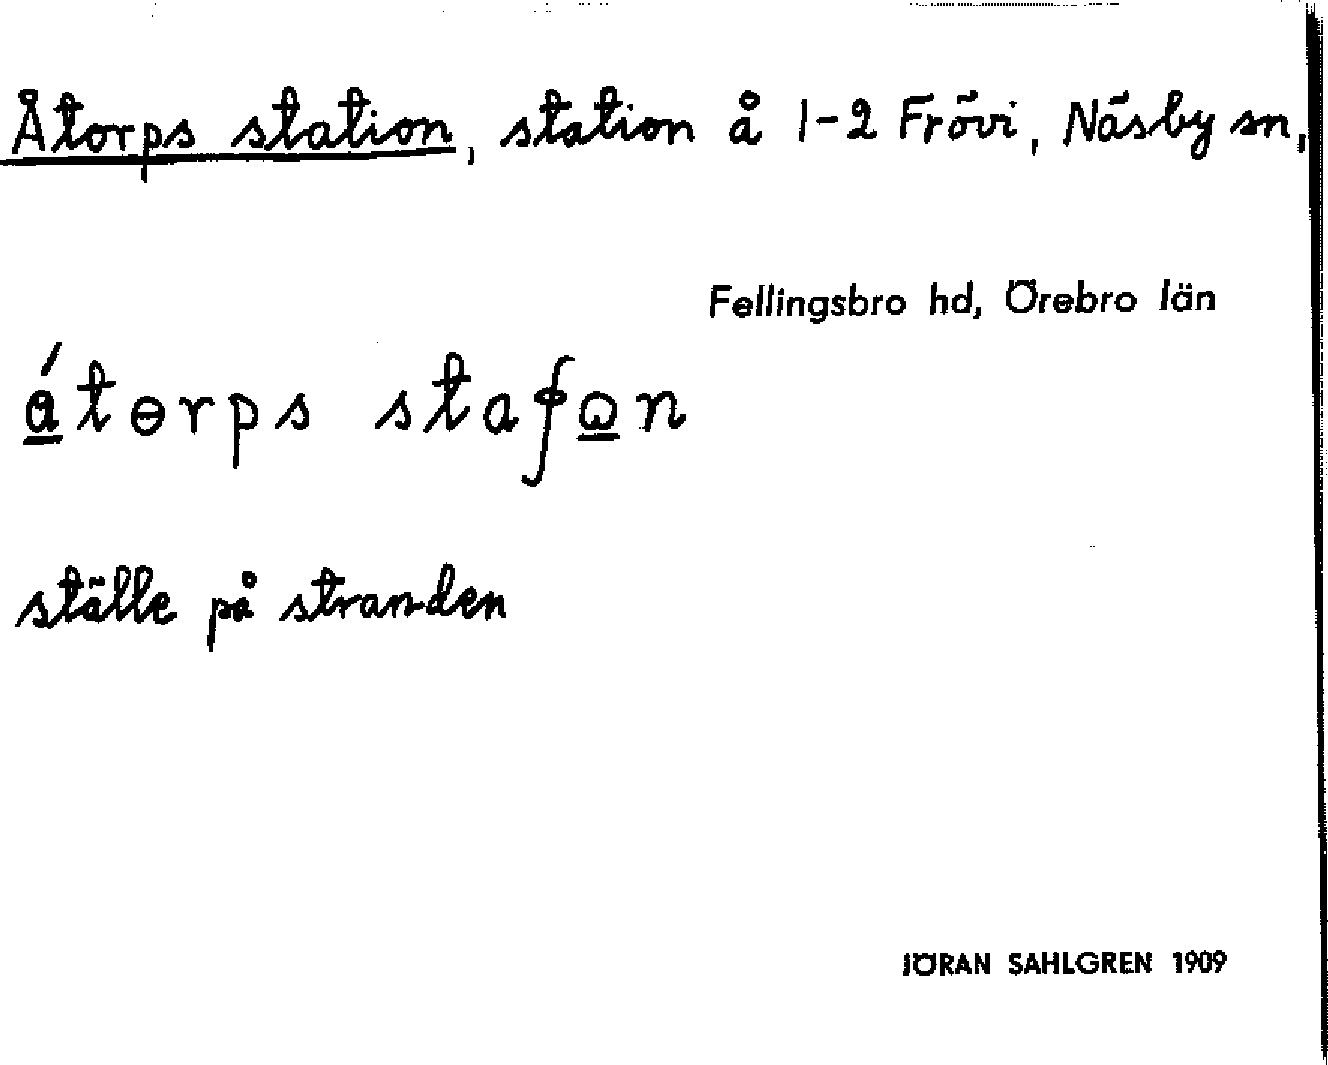 Åtorps station, station å 1-2 Frövi, Näsby sn,
Fellingsbro hd, Örebro län
á̱tɵrps staʃω̱n
ställe på stranden
JÖRAN SAHLGREN 1909